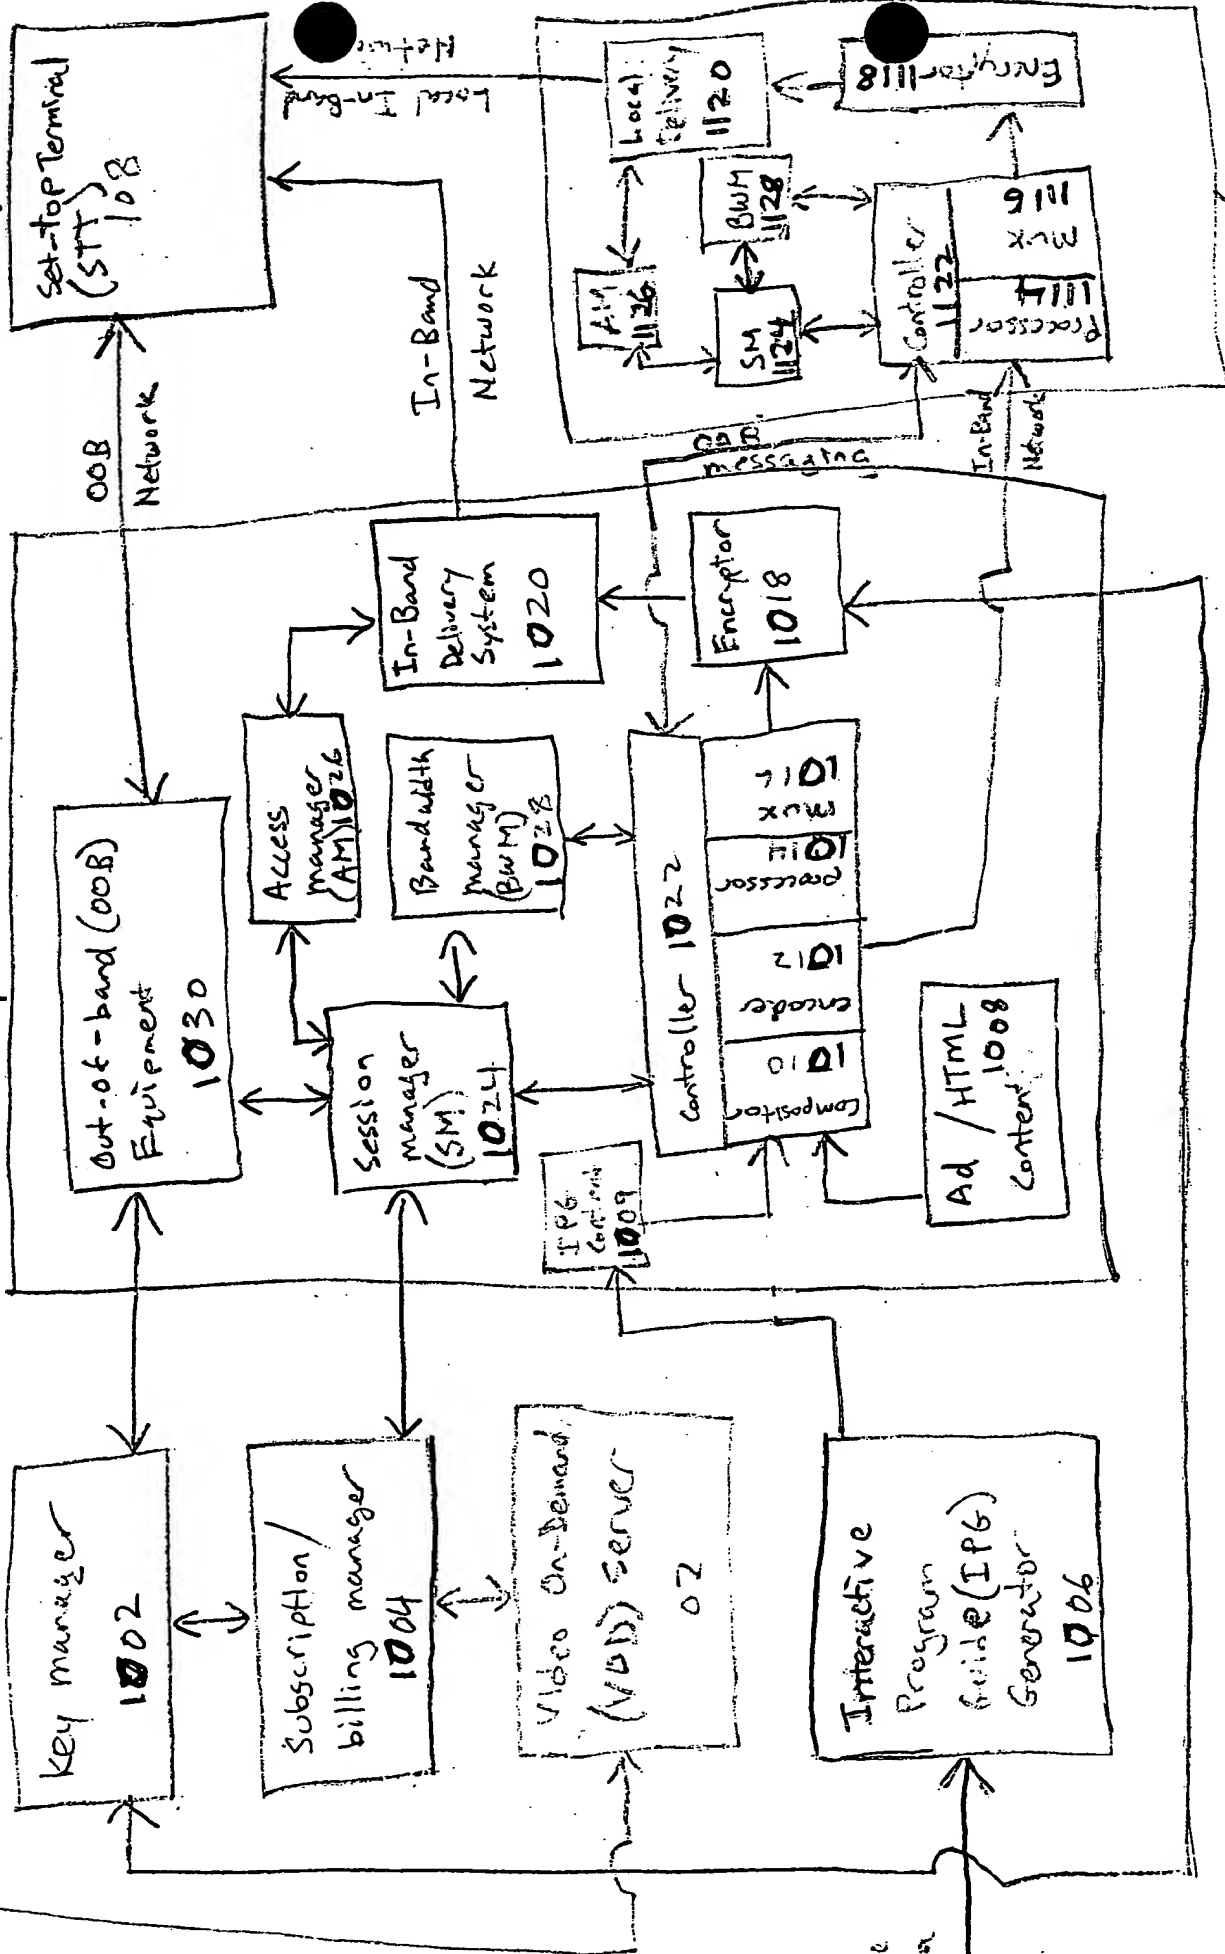 Key manager
1002
Subscription/
billing manager
1004
Video On-Demand
(VOD) Server
02
Interactive
Program
Guide (IPG)
Generator
1006
Out-of-band (OOB)
Equipment
1030
Session
manager
(SM)
1024
Access
manager
(AM) 1026
Bandwidth
manager
(BWM)
1028
IPG
Content
1009
Controller 1022
compositor
1010
encoder
1012
processor
1014
mux
1016
Ad / HTML
1008
Content
In-Band
Delivery
System
1020
Encryptor
1018
OOB
Network
In-Band
Network
messaging
In-Band
Network
Set-top Terminal
(STT)
108
Local In-Band
Network
AM
1126
SM
1124
BWM
1128
Local
Delivery
1120
Controller
1122
Processor
1114
mux
1116
Encryptor 1118